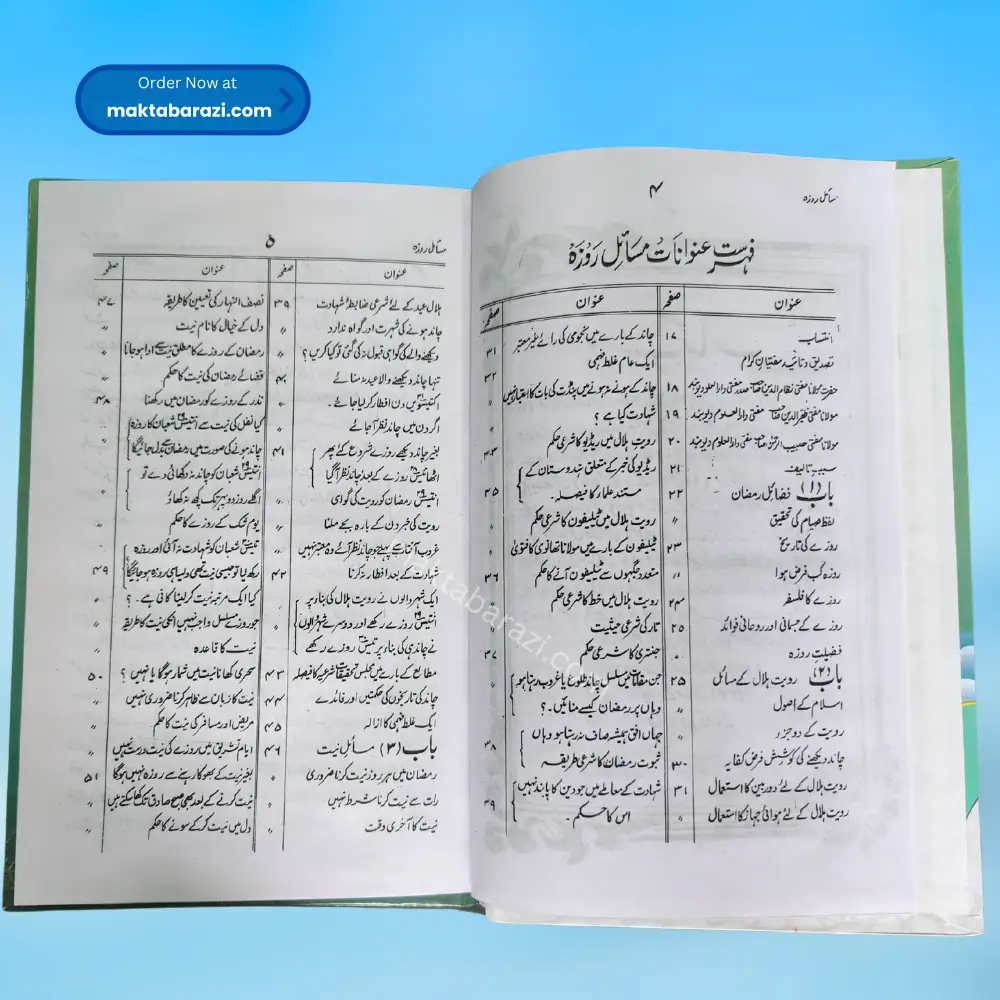 Order Now at
maktabarazi.com
مسائل روزہ
۴
فہرست عنوانات مسائل روزہ
عنوان صفحہ عنوان صفحہ
انتساب ۱۷
تصدیق و تائید مفتیانِ کرام
حضرت مولانا مفتی نظام الدین صدر مفتی دارالعلوم دیوبند ۱۸
مولانا مفتی ظفیر الدین مفتی دارالعلوم دیوبند ۱۹
مولانا مفتی حبیب الرحمٰن مفتی دارالعلوم دیوبند ۲۰
سببِ تالیف ۲۱
باب (۱) فضائل رمضان ۲۲
لفظ صیام کی تحقیق 〃
روزے کی تاریخ ۲۳
روزہ کب فرض ہوا 〃
روزے کا فلسفہ ۲۴
روزے کے جسمانی اور روحانی فوائد ۲۵
فضیلت روزہ 〃
باب (۲) رویت ہلال کے مسائل ۲۵
اسلام کے اصول 〃
رویت کے دو جزء 〃
چاند دیکھنے کی کوشش فرض کفایہ ۳۰
رویت ہلال کے لئے دوربین کا استعمال ۳۱
رویت ہلال کے لئے ہوائی جہاز کا استعمال 〃
چاند کے بارے میں نجومی کی رائے غیر معتبر ۳۱
ایک عام غلط فہمی ۳۲
چاند کے ہونے نہ ہونے میں پنڈت کی بات کا اعتبار نہیں 〃
شہادت کیا ہے ؟ 〃
رویت ہلال میں ریڈیو کا شرعی حکم ۳۳
ریڈیو کی خبر کے متعلق ہندوستان کے
مستند علمار کا فیصلہ ۔ ۳۵
رویت ہلال میں ٹیلیفون کا شرعی حکم
ٹیلیفون کے بارے میں مولانا تھانوی کا فتویٰ 〃
متعدد جگہوں سے ٹیلیفون آنے کا حکم ۳۶
رویت ہلال میں خط کا شرعی حکم 〃
تار کی شرعی حیثیت 〃
جنتری کا شرعی حکم ۳۷
جن مقامات میں مسلسل چاند طلوع یا غروب رہتا ہو
وہاں پر رمضان کیسے منائیں ۔؟
جہاں افق ہمیشہ صاف نہ رہتا ہو وہاں
ثبوت رمضان کا شرعی طریقہ ۳۸
شہادت کے معاملے میں جو دین کا پابند نہیں
اس کا حکم ۔ ۳۹
مسائل روزہ
۵
عنوان صفحہ عنوان صفحہ
ہلال عید کے لئے شرعی ضابطۂ شہادت ۳۹
چاند ہونے کی شہرت اور گواہ ندارد 〃
دیکھنے والے کی گواہی قبول نہ کی گئی تو کیا کریں ؟ 〃
تنہا چاند دیکھنے والا عید نہ منائے
اکتیسویں دن افطار کر لیا جائے ۔ 〃
اگر دن میں چاند نظر آ جائے ۔
بغیر چاند دیکھے روزے شروع کئے پھر ۴۱
اٹھائیس روزے کے بعد چاند نظر آ گیا
انتیس رمضان کو رویت کی گواہی
رویت کی خبر دن کے بارہ بجے ملنا 〃
غروب آفتاب سے پہلے جو چاند نظر آئے وہ معتبر نہیں 〃
شہادت کے بعد افطار نہ کرنا ۴۲
ایک شہر والوں نے رویت ہلال کی بناء پر
انتیس روزے رکھے اور دوسرے شہر والوں
نے چاند ہی کی بناء پر تیس روزے رکھے
مطالع کے بارے میں مجلس تحقیقات شرعیہ کا فیصلہ ۴۳
چاند کی تاریخوں کی حکمتیں اور فائدے ۴۴
ایک غلط فہمی کا ازالہ ۴۵
باب (۳) مسائل نیت ۴۶
رمضان میں ہر روز نیت کرنا ضروری 〃
رات سے نیت کرنا شرط نہیں 〃
نیت کا آخری وقت 〃
نصف النہار کی تعیین کا طریقہ ۴۷
دل کے خیال کا نام نیت 〃
رمضان کے روزے کا مطلق نیت سے ادا ہو جانا 〃
قضائے رمضان کی نیت کا حکم 〃
نذر کے روزے میں رمضان میں رکھنا ۴۸
کیا نفل کی نیت سے انتیس شعبان کا روزہ
چاند ہونے کی صورت میں رمضان سے بدل جائیگا
انتیس شعبان کو چاند نہ دکھائی دے تو
اگلے روز دوپہر تک کچھ نہ کھاؤ
یوم شک کے روزے کا حکم 〃
تیس شعبان کو شہادت نہ آئی اور روزہ
رکھ لیا تو جیسی نیت تھی ویسا ہی روزہ ہو جائیگا ۴۹
کیا ایک مرتبہ نیت کر لینا کافی ہے ۔ ؟ 〃
جو روزے مسلسل واجب نہیں انکی نیت کا طریقہ 〃
نیت کا قاعدہ 〃
سحری کھانا نیت میں شمار ہوگا یا نہیں ؟ ۵۰
نیت کا زبان سے ظاہر کرنا ضروری نہیں 〃
مریض اور مسافر کی نیت کا حکم 〃
ایام تشریق میں روزے کی نیت درست نہیں 〃
بغیر نیت کے بھوکا رہنے سے روزہ نہیں ہوگا ۵۱
نیت کرنے کے بعد بھی صبح صادق تک کھا سکتے ہیں 〃
دل میں نیت کر کے سونے کا حکم 〃
maktabarazi.com